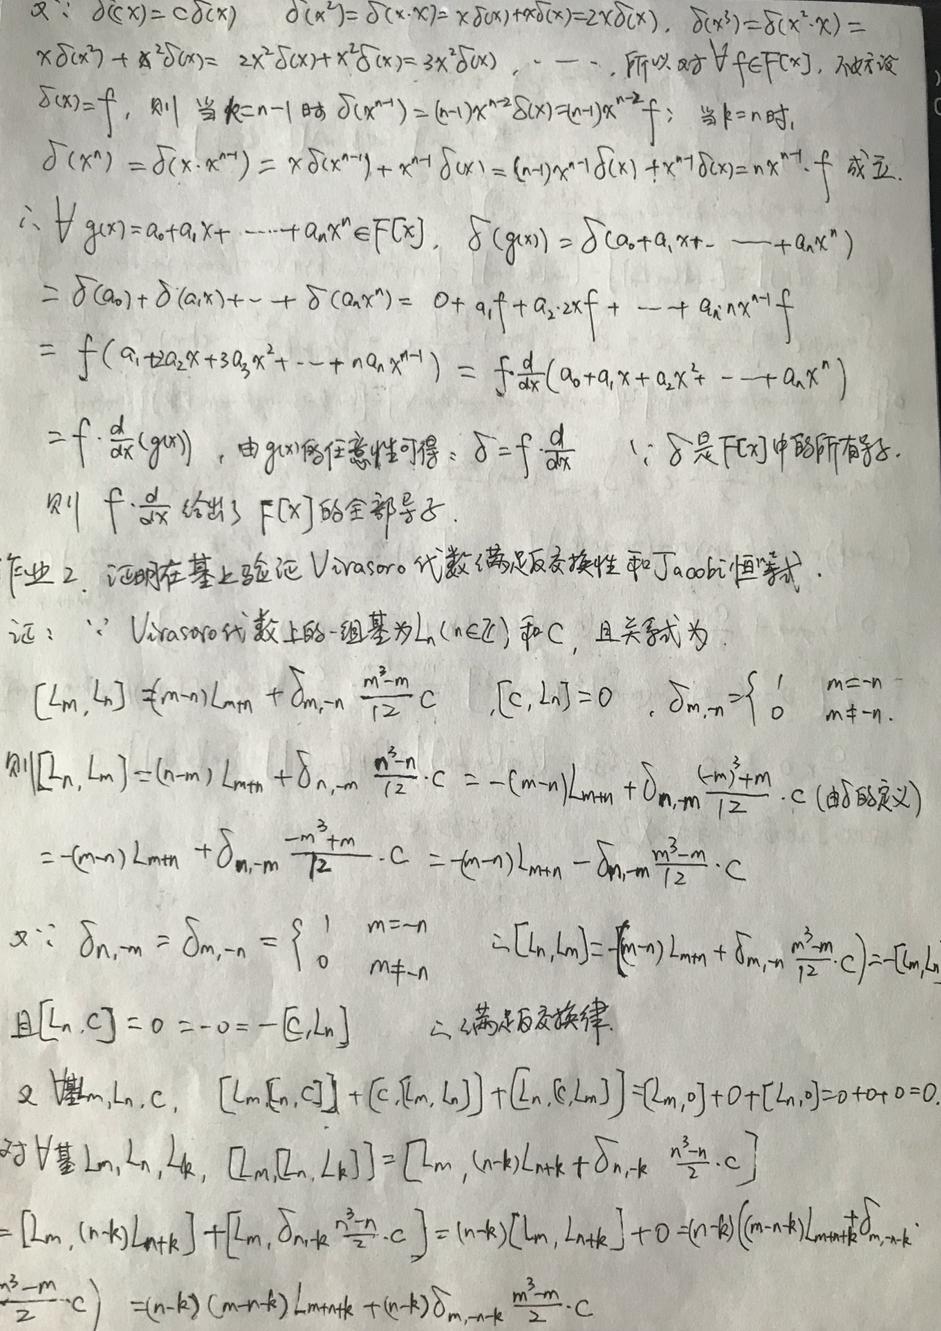 又∵ δ(cx)=cδ(x) δ(x²)=δ(x·x)=xδ(x)+xδ(x)=2xδ(x), δ(x³)=δ(x²·x)=
xδ(x²)+x²δ(x)=2x²δ(x)+x²δ(x)=3x²δ(x), ……, 所以对∀f∈F[x], 不妨设
δ(x)=f, 则 当k=n-1时 δ(xⁿ⁻¹)=(n-1)xⁿ⁻²δ(x)=(n-1)xⁿ⁻²f; 当k=n时,
δ(xⁿ)=δ(x·xⁿ⁻¹)=xδ(xⁿ⁻¹)+xⁿ⁻¹δ(x)=(n-1)xⁿ⁻¹δ(x)+xⁿ⁻¹δ(x)=nxⁿ⁻¹·f 成立.
∴ ∀g(x)=a₀+a₁x+……+aₙxⁿ∈F[x], δ(g(x))=δ(a₀+a₁x+……+aₙxⁿ)
=δ(a₀)+δ(a₁x)+…+δ(aₙxⁿ)=0+a₁f+a₂·2xf+…+aₙ·nxⁿ⁻¹f
=f(a₁+2a₂x+3a₃x²+…+naₙxⁿ⁻¹)=f·d/dx(a₀+a₁x+a₂x²+…+aₙxⁿ)
=f·d/dx(g(x)), 由g(x)的任意性可得: δ=f·d/dx ∵ δ是F[x]中的所有导子.
则 f·d/dx 给出了 F[x]的全部导子.
作业2. 证明在基上验证Virasoro代数满足反交换性和Jacobi恒等式.
证: ∵ Virasoro代数上的一组基为Lₙ(n∈Z)和C, 且关系式为
[Lm,Ln]=(m-n)Lm+n + δm,-n (m³-m)/12 C ,[C,Ln]=0 , δm,-n={1 m=-n 0 m≠-n.
则[Ln,Lm]=(n-m)Lm+n + δn,-m (n³-n)/12·C = -(m-n)Lm+n + δn,-m ((-m)³+m)/12·C (由δ的定义)
=-(m-n)Lm+n + δn,-m (-m³+m)/12·C = -(m-n)Lm+n - δn,-m (m³-m)/12·C
又∵ δn,-m = δm,-n = {1 m=-n 0 m≠-n ∴[Ln,Lm]=-((m-n)Lm+n + δm,-n (m³-m)/12·C)=-[Lm,Ln
且[Ln,C]=0=-0=-[C,Ln] ∴满足反交换律.
又∀基Lm,Ln,C, [Lm,[Ln,C]]+[C,[Lm,Ln]]+[Ln,[C,Lm]]=[Lm,0]+0+[Ln,0]=0+0+0=0.
对∀基Lm,Ln,Lk, [Lm,[Ln,Lk]]=[Lm,(n-k)Ln+k + δn,-k (n³-n)/2·C]
=[Lm,(n-k)Ln+k]+[Lm,δn,-k (n³-n)/2·C]=(n-k)[Lm,Ln+k]+0=(n-k)((m-n-k)Lm+n+k+δm,-n-k·
(m³-m)/2·C) =(n-k)(m-n-k)Lm+n+k+(n-k)δm,-n-k (m³-m)/2·C